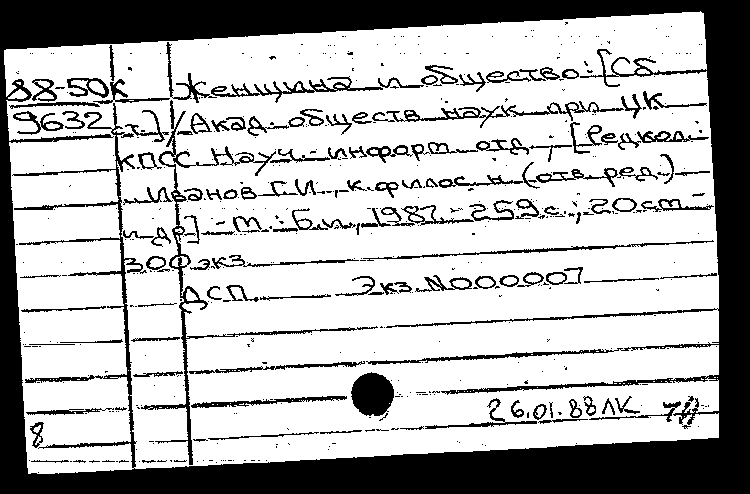 88-50к Женщина и общество: [Сб.
9632 ст.] / Акад. обществ. наук при ЦК
КПСС. Науч.-информ. отд. ; [Редкол.:
Иванов Г.И., к. филос. н. (отв. ред.)
и др.] - М. : Б.и., 1987. - 259 с. ; 20 см. -
300 экз.
ДСП. Экз. N000007
26.01.88 ЛК
8